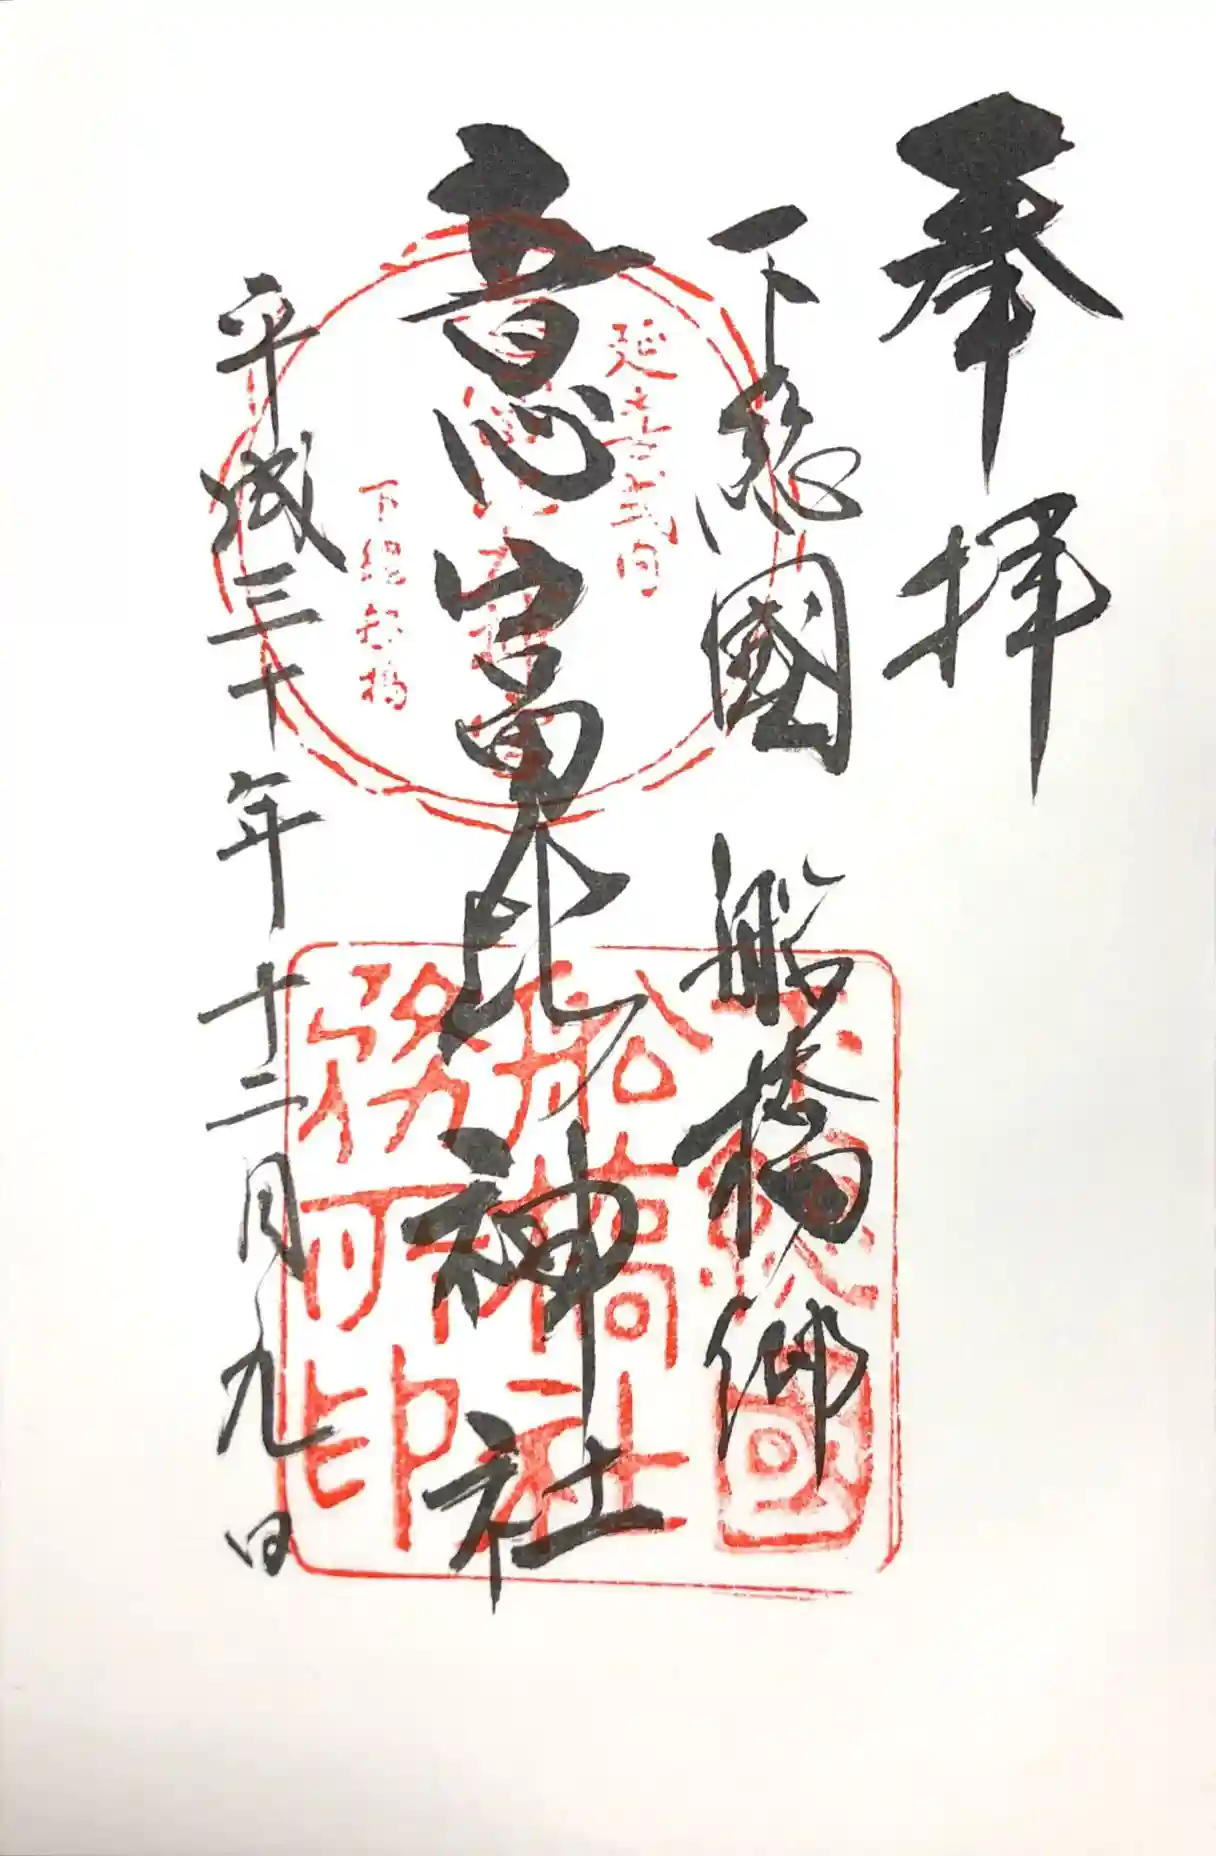 奉拝
下総國 船橋郷
意富比神社
平成三十年十二月九日
延喜式内
下総船橋
船橋神社
務所印